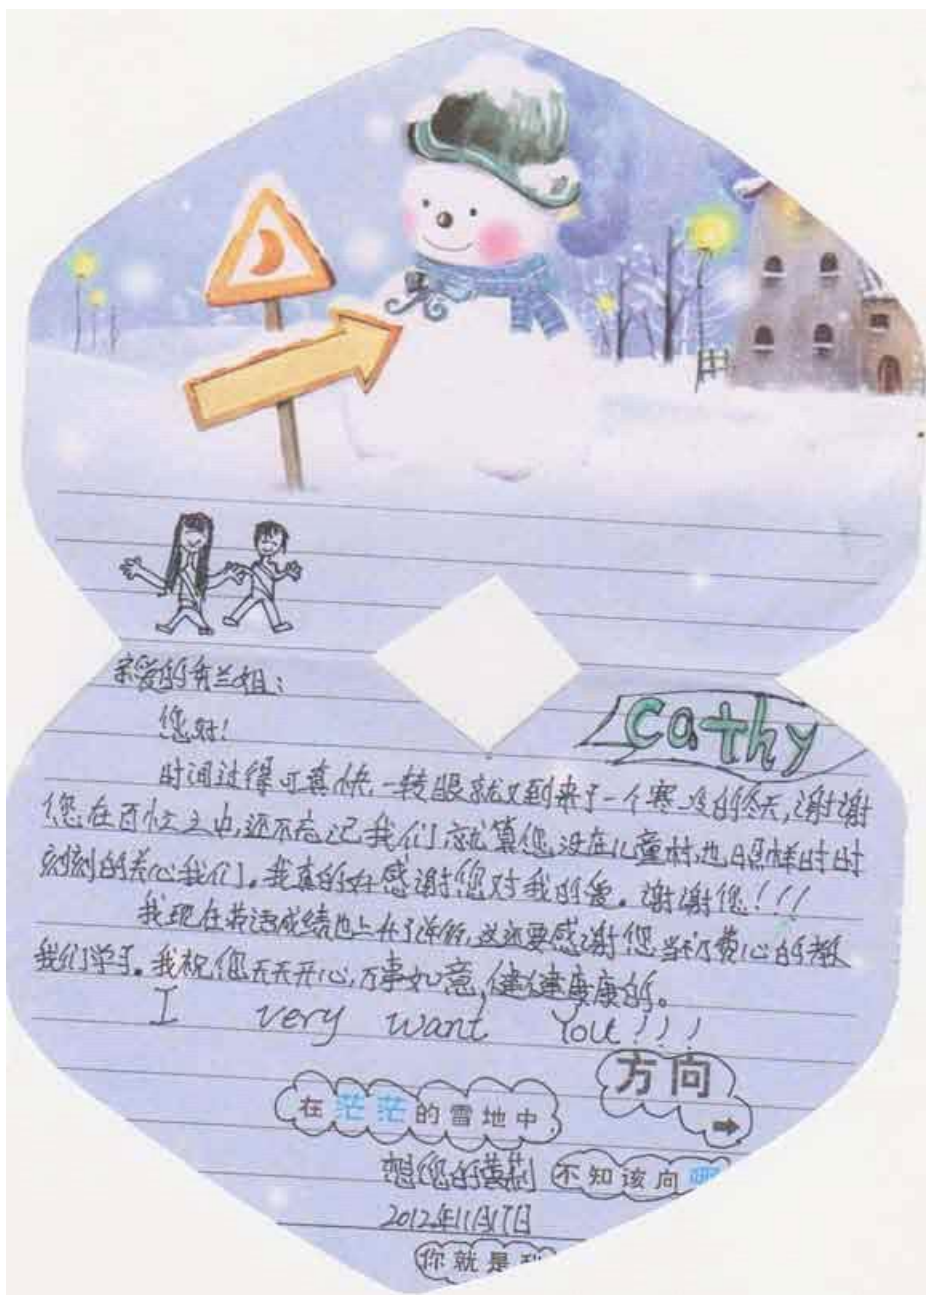 亲爱的秀兰姐:
cathy
您好!
时间过得可真快,一转眼就又到来了一个寒冷的冬天,谢谢
您在百忙之中,还不忘记我们,就算您没在儿童村,也照样时时
刻刻的关心我们。我真的好感谢您对我的爱。谢谢您!!!
我现在英语成绩也上升了许多,这还要感谢您当初费心的教
我们学习。我祝您天天开心,万事如意,健健康康的。
I very want You!!!
方向
在茫茫的雪地中
想您的黄莉
不知该向哪
2012年11月17日
你就是我